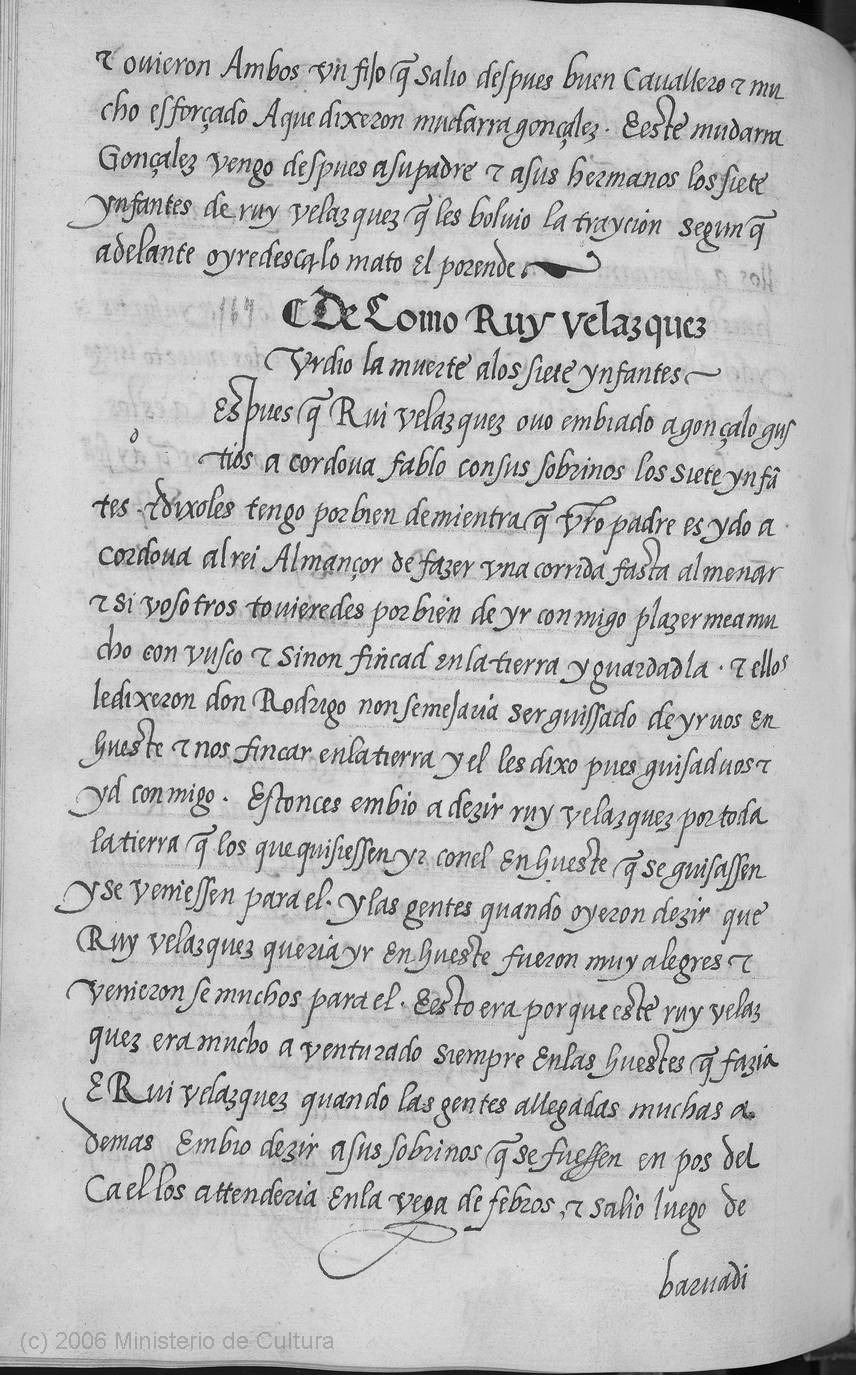 ⁊ ouieron Ambos vn fijo q̃ salio despues buen Cauallero ⁊ mu
cho esforçado A que dixeron mudarra gonçalez . E este mudarra
Gonçalez vengo despues a su padre ⁊ a sus hermanos los siete
ynfantes de ruy velazquez q̃ les boluio la traycion segun q̃
adelante oyredes ca lo mato el porende
⸿ De Como Ruy velazquez
Vrdio la muerte a los siete ynfantes
Espues q̃ Rui velazquez ouo embiado a gonçalo gus
tios a cordoua fablo con sus sobrinos los siete ynfã
tes . ⁊ dixoles tengo por bien demientra q̃ vr̃o padre es ydo a
cordoua al rei Almançor de fazer vna corrida fasta almenar
⁊ si vosotros touieredes por bien de yr conmigo plazerme a mu
cho con vusco ⁊ sinon fincad en la tierra y guardadla . ⁊ ellos
le dixeron don Rodrigo non semejaria ser guissado de yr vos en
hueste ⁊ nos fincar en la tierra y el les dixo pues guisad uos ⁊
yd conmigo . Estonces embio a dezir ruy velazquez por toda
la tierra q̃ los que quisiessen yr con el en hueste q̃ se guisassen
y se veniessen para el . y las gentes quando oyeron dezir que
Ruy velazquez queria yr en hueste fueron muy alegres ⁊
venieron se muchos para el . E esto era por que este ruy velaz
quez era mucho a venturado siempre en las huestes q̃ fazia
E Rui velazquez quando las gentes allegadas muchas a
demas Embio dezir a sus sobrinos q̃ se fuessen en pos del
Ca el los attenderia en la vega de febros , ⁊ salio luego de
baruadi
(c) 2006 Ministerio de Cultura